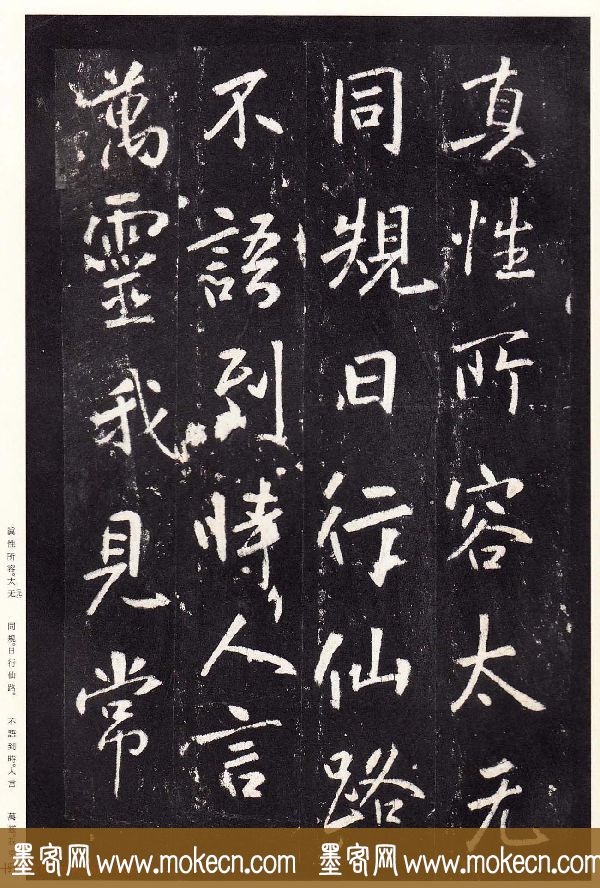 真性所容太无
同規日行仙路
不語到時人言
萬靈我見常
眞性所容。太无
同規。日行仙路。
不語到時。人言
萬
墨客网 www.mokecn.com 墨客网 www.mokecn.com